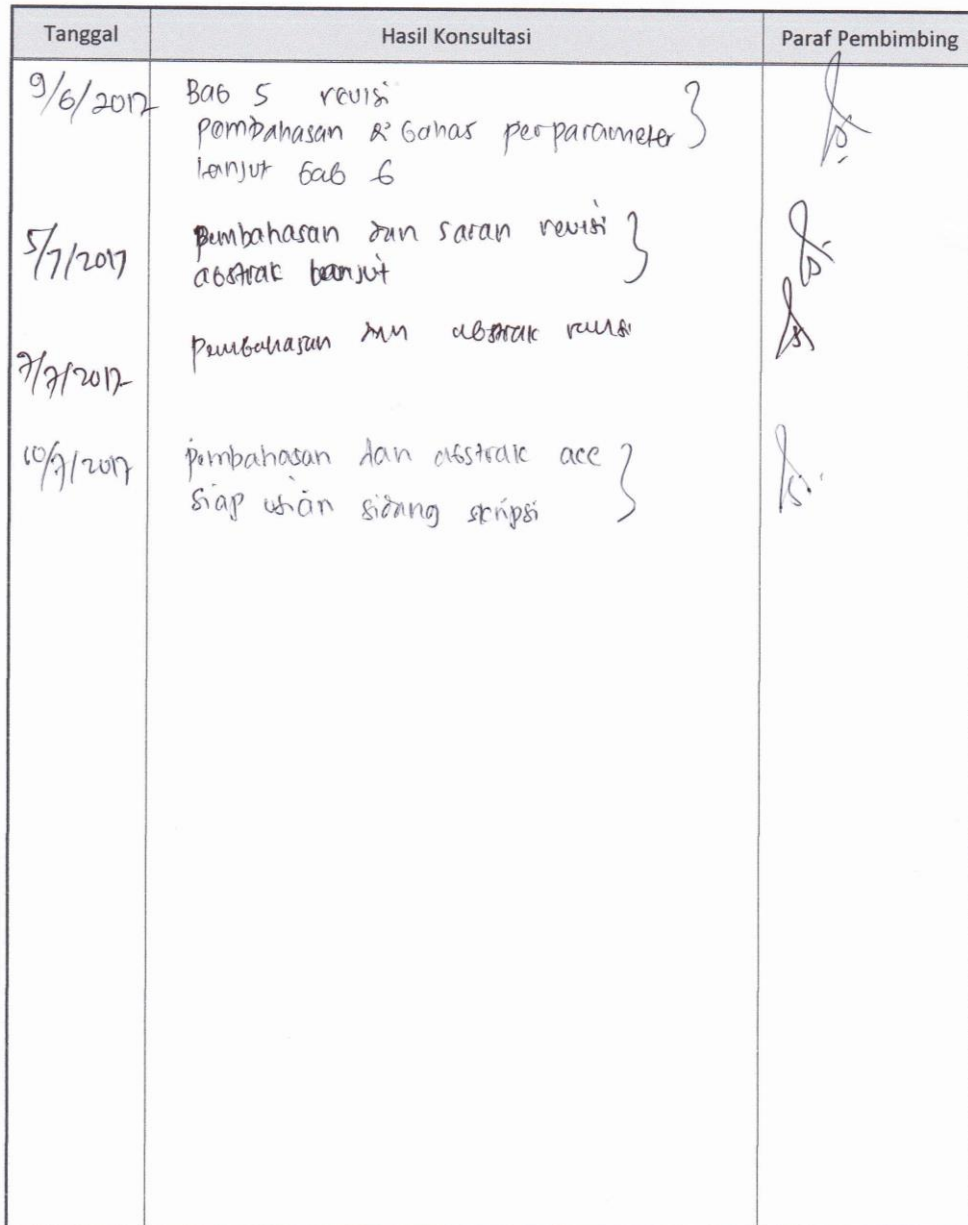 Tanggal Hasil Konsultasi Paraf Pembimbing
9/6/2017 Bab 5 revisi
pembahasan di bahas perparameter
lanjut bab 6
5/7/2017 pembahasan dan saran revisi
abstrak lanjut
7/7/2017 pembahasan dan abstrak revisi
10/7/2017 pembahasan dan abstrak acc
siap ujian sidang skripsi